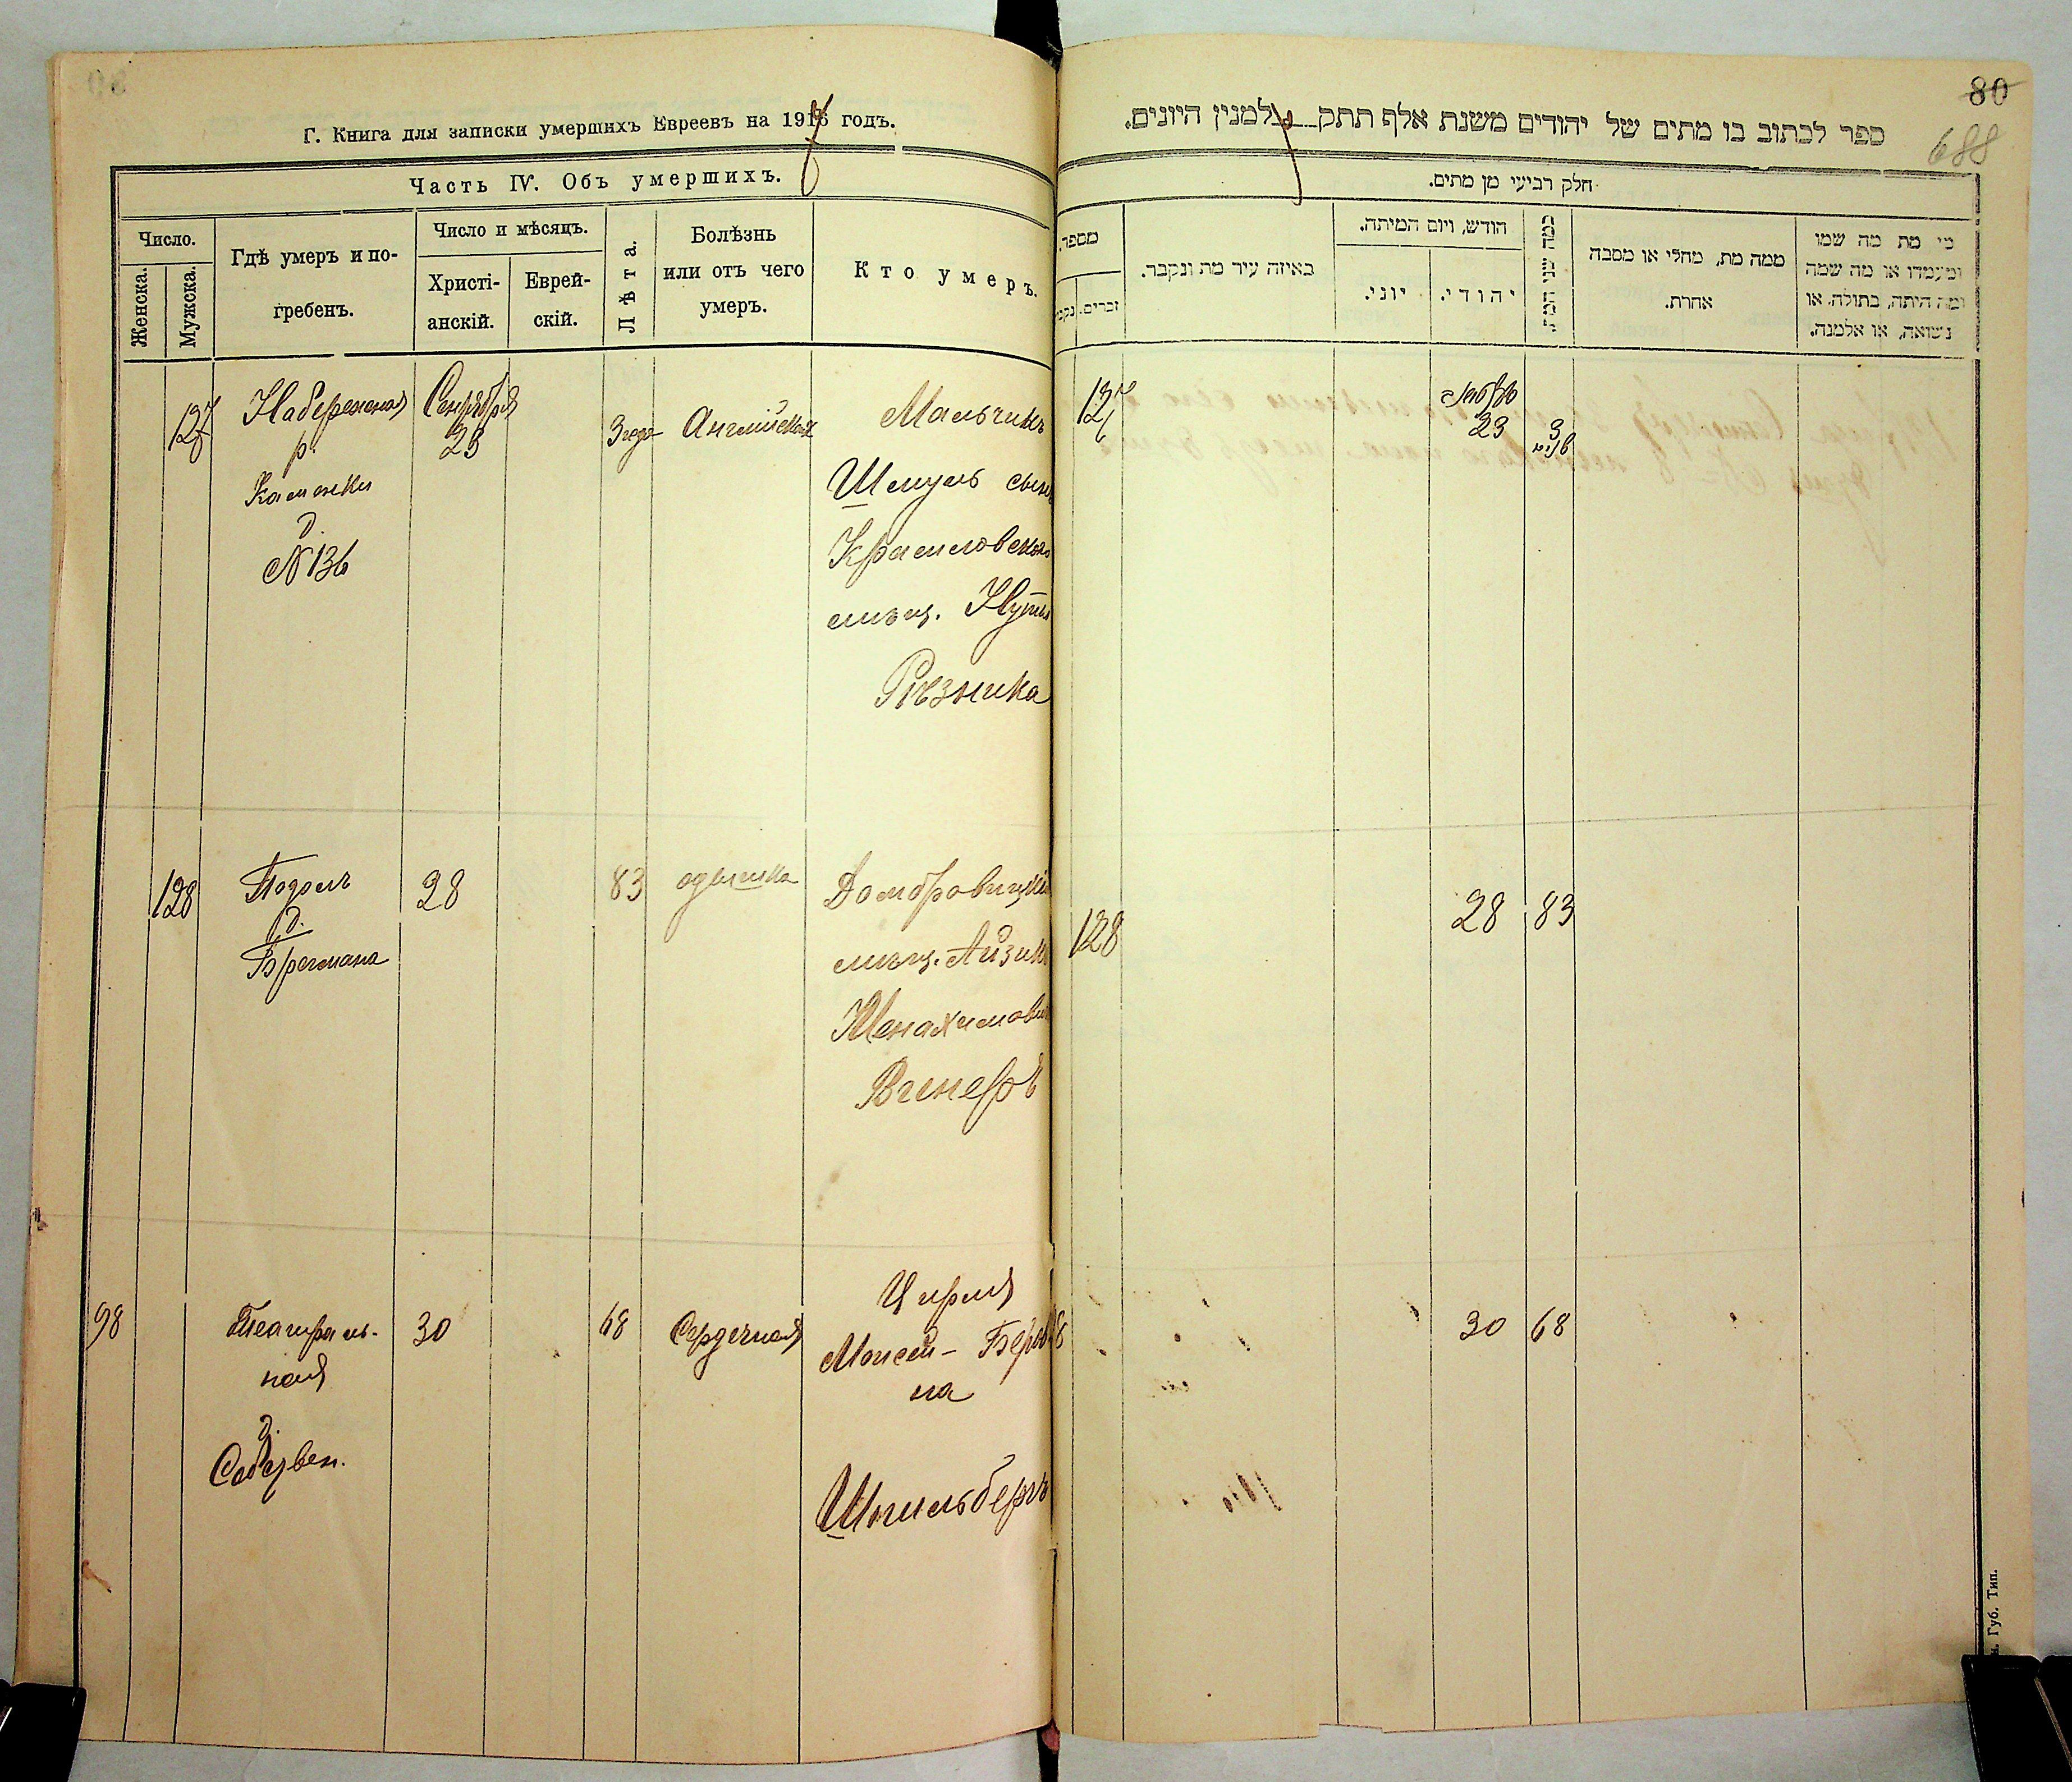 Г. Книга для записки умершихъ Евреевъ на 1917 годъ.
Часть IV. Объ умершихъ.
Число.
Женска.
Мужска.
Гдѣ умеръ и по-
гребенъ.
Число и мѣсяцъ.
Христі-
анскій.
Еврей-
скій.
Лѣта.
Болѣзнь
или отъ чего
умеръ.
Кто умеръ.
127
Набережная
р.
Каменки
д.
№ 136
Сентября
23
3 года
Английская
Мальчикъ
Шмуль сынъ
Красиловскаго
мѣщ.
Рѣзника
128
Подолъ
д.
Бргмана
28
83
одышка
Домбровицкій
мѣщ. Айзикъ
Менахимович
Винеръ
98
Театраль-
ная
д.
30
68
Сердечная
Цирля
Моисей-Беров
на
Шпильбергъ
80
688
ספר לכתוב בו מתים של יהודים משנת אלף תתק למנין היונים.
חלק רביעי מן מתים.
מספר.
זכרים.
נקב
באיזה עיר מת ונקבר.
הודש, ויום המיתה.
יוני.
יהודי.
כמה שני המת
ממה מת, מחלי או מסבה
אחרת.
מי מת מה שמו
ומעמדו או מה שמה
ומה היתה, בתולה, או
נשואה, או אלמנה.
127
23
3
128
28
83
8
30
68
Губ. Тип.